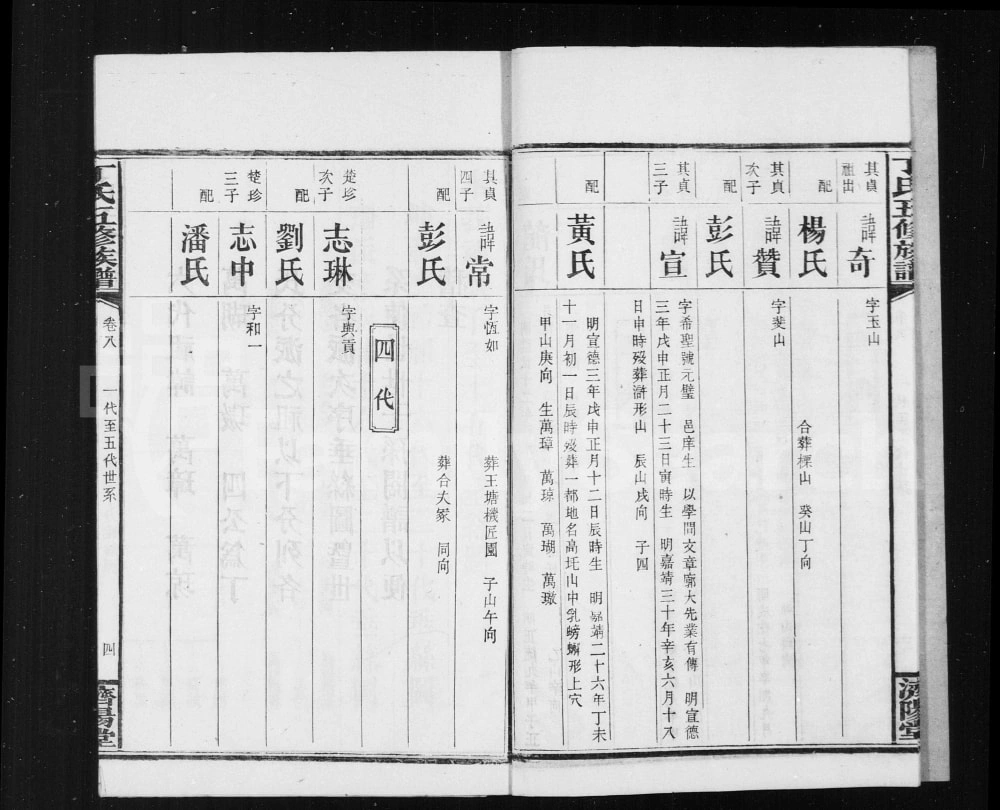 丁氏五修族譜
濟陽堂
其貞祖出
諱奇
字玉山
配
楊氏
合葬標山　癸山丁向
其貞次子
諱贊
字斐山
配
彭氏
其貞三子
諱宣
字希聖號元璧　邑庠生　以學問文章廓大先業有傳　明宣德
三年戊申正月二十三日寅時生　明嘉靖三十年辛亥六月十八
日申時歿葬滸形山　辰山戌向　子四
配
黃氏
明宣德三年戊申正月十二日辰時生　明嘉靖二十六年丁未
十一月初一日辰時歿葬一都地名高圫山中乳螃蠏形上穴
甲山庚向　生萬璋　萬琼　萬瑚　萬璥
其貞四子
諱常
字恆如
葬王塘機匠園　子山午向
配
彭氏
葬合夫冢　同向
四代
楚珍次子
志琳
字興貢
配
劉氏
楚珍三子
志中
字和一
配
潘氏
丁氏五修族譜
卷八
一代至五代世系
四
濟陽堂